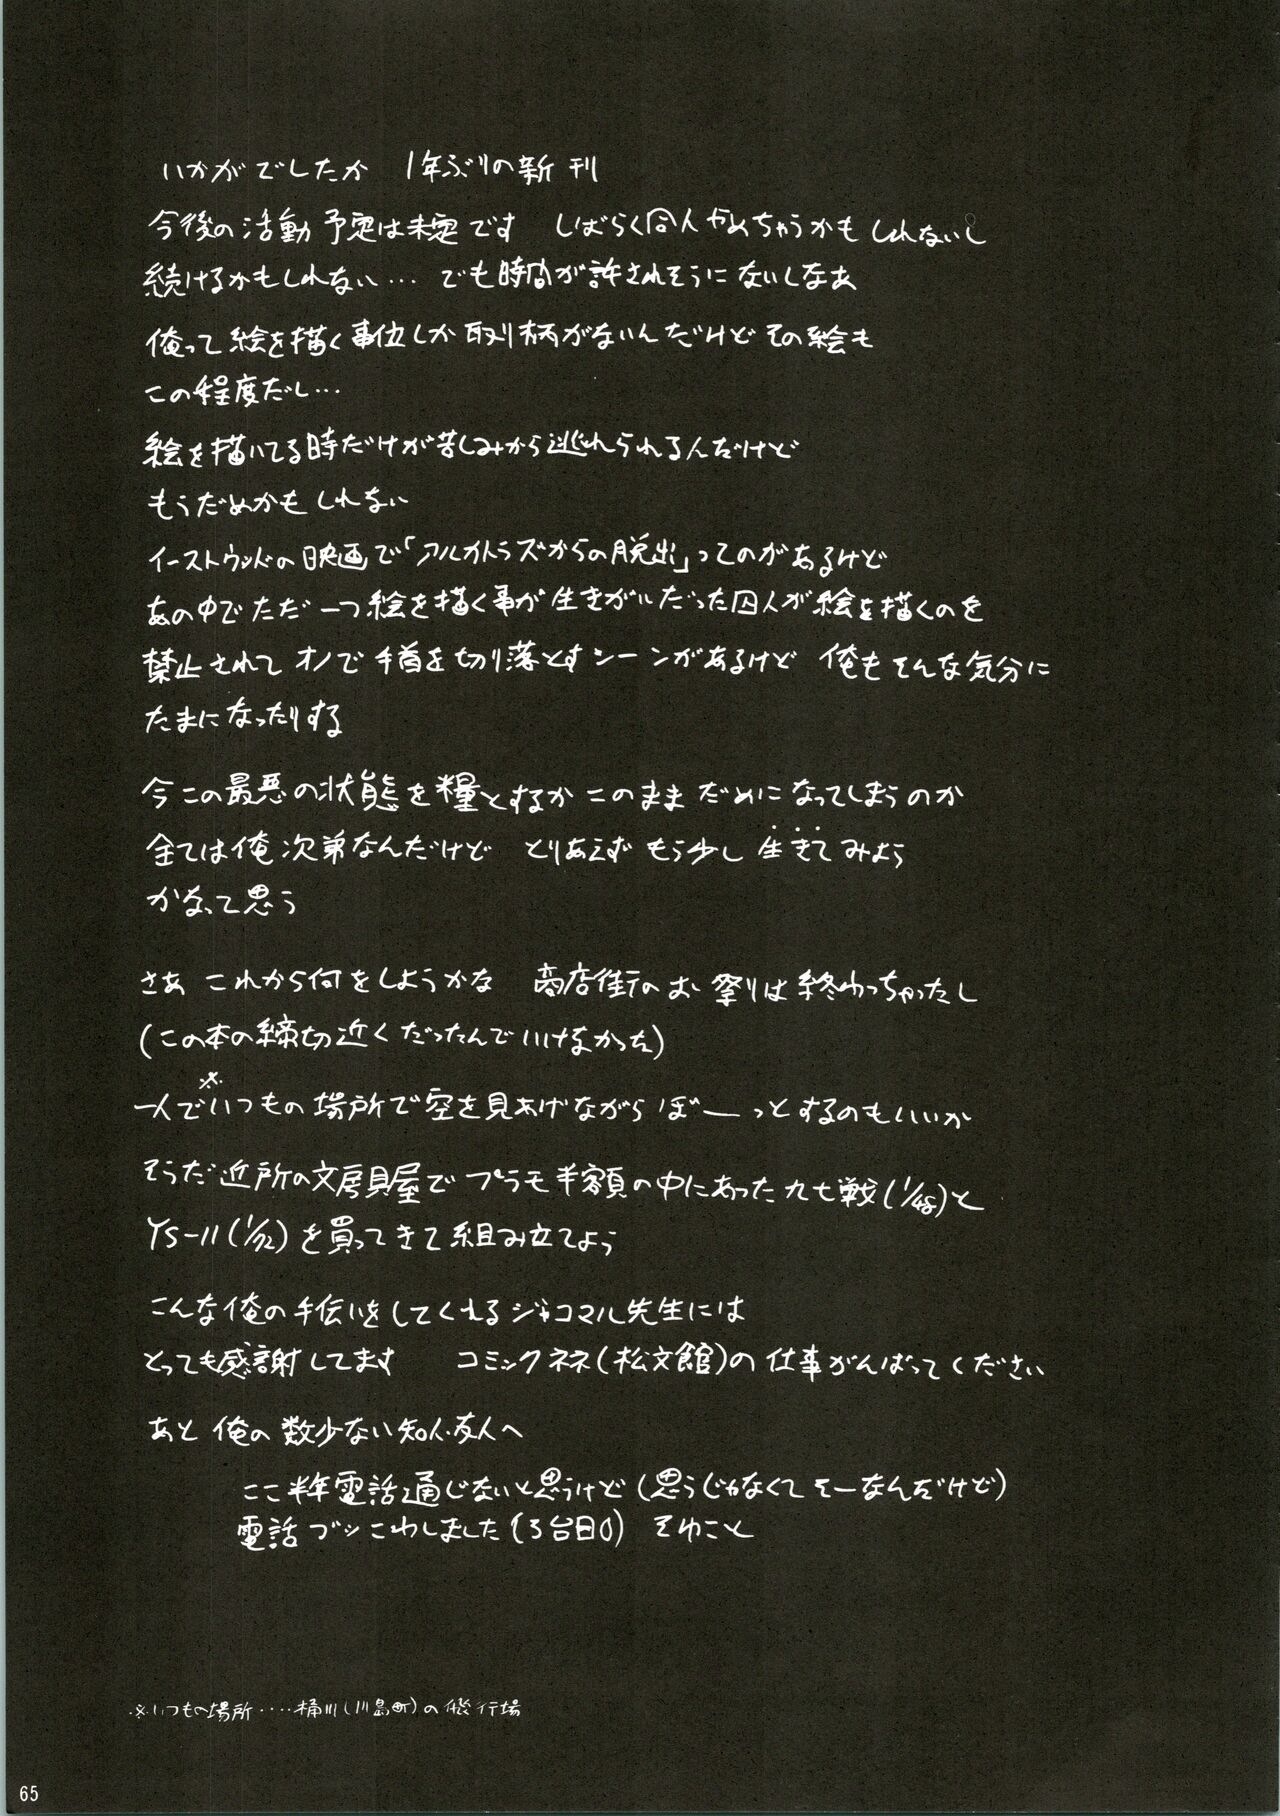 いかがでしたか　1年ぶりの新刊
今後の活動予定は未定です　しばらく同人やめちゃうかもしれないし
続けるかもしれない… でも時間が許されそうにないしなあ
俺って絵を描く事位しか取り柄がないんだけど その絵も
この程度だし…
絵を描いてる時だけが苦しみから逃れられるんだけど
もうだめかもしれない
イーストウッドの映画で「アルカトラズからの脱出」ってのがあるけど
あの中でただ一つ絵を描く事が生きがいだった囚人が絵を描くのを
禁止されて オノで手首を切り落とすシーンがあるけど 俺もそんな気分に
たまになったりする
今この最悪の状態を糧とするか このままだめになってしまうのか
全ては俺次第なんだけど とりあえず もう少し 生きてみよう
かなって思う
さあ これから何をしようかな 商店街のお祭りは終わっちゃったし
(この本の締切近くだったんでいけなかった)
一人で※いつもの場所で空を見あげながら ぼーっとするのもいいか
そうだ近所の文房具屋で プラモ半額の中にあった九七戦(1/48)と
YS-11(1/72)を買ってきて組み立てよう
こんな俺の手伝いをしてくれるジャコマル先生には
とっても感謝してます　コミックネネ(松文館)の仕事がんばってください
あと 俺の数少ない知人・友人へ
ここ半年電話通じないと思うけど(思うじゃなくて そーなんだけど)
電話ブッこわしました(3台目!) そゆこと
※いつもの場所‥‥桶川(川島町)の飛行場
65